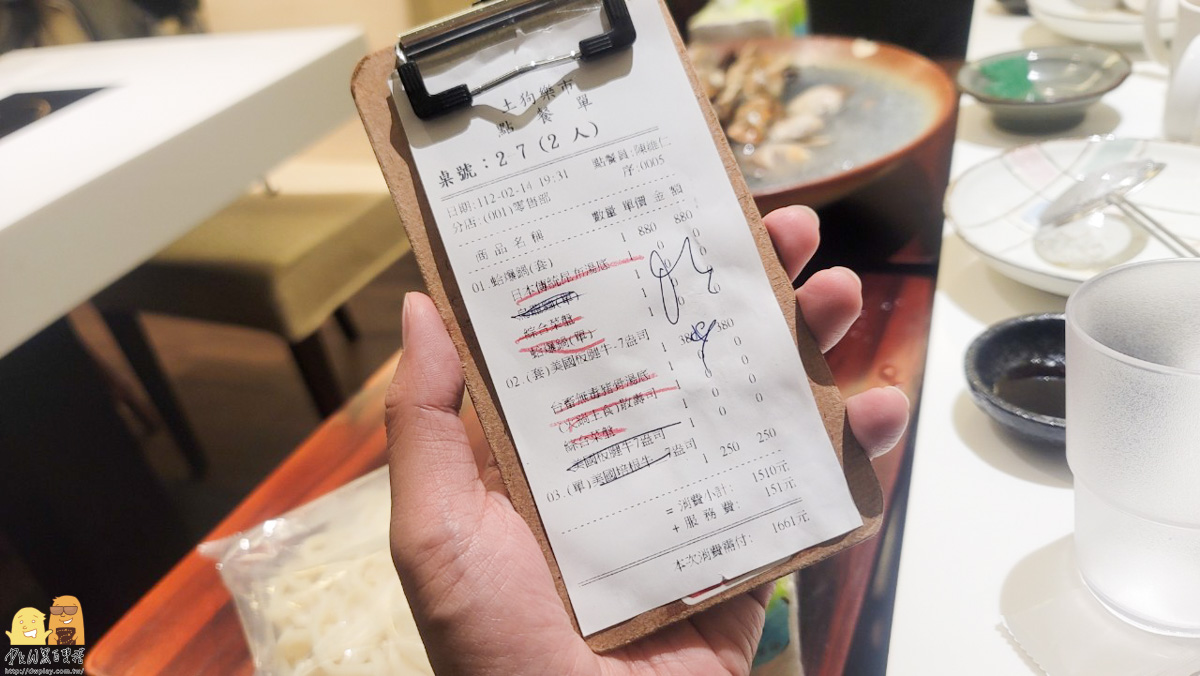 土狗樂市
點餐單
桌號：27 (2人)
日期:112-02-14 19:31 點餐員:陳進仁
分店:(001)零售部 序:0005
商品名稱 數量 單價 金額
01.蛤爆鍋(套) 1 880 880
日本傳統昆布湯底 1 0 0
(單) 1 0 0
綜合菜盤 1 0 0
蛤爆鍋(單) 1 0 0
02.(套)美國板腱牛-7盎司 1 380 380
台畜無毒豬骨湯底 1 0 0
(火鍋主食) 1 0 0
綜合菜盤 1 0 0
美國板腱牛7盎司 1 0 0
03.(單)美國 牛-7盎司 1 250 250
=消費小計: 1510元
+服務費: 151元
本次消費需付: 1661元
http://dwplay.com.tw/